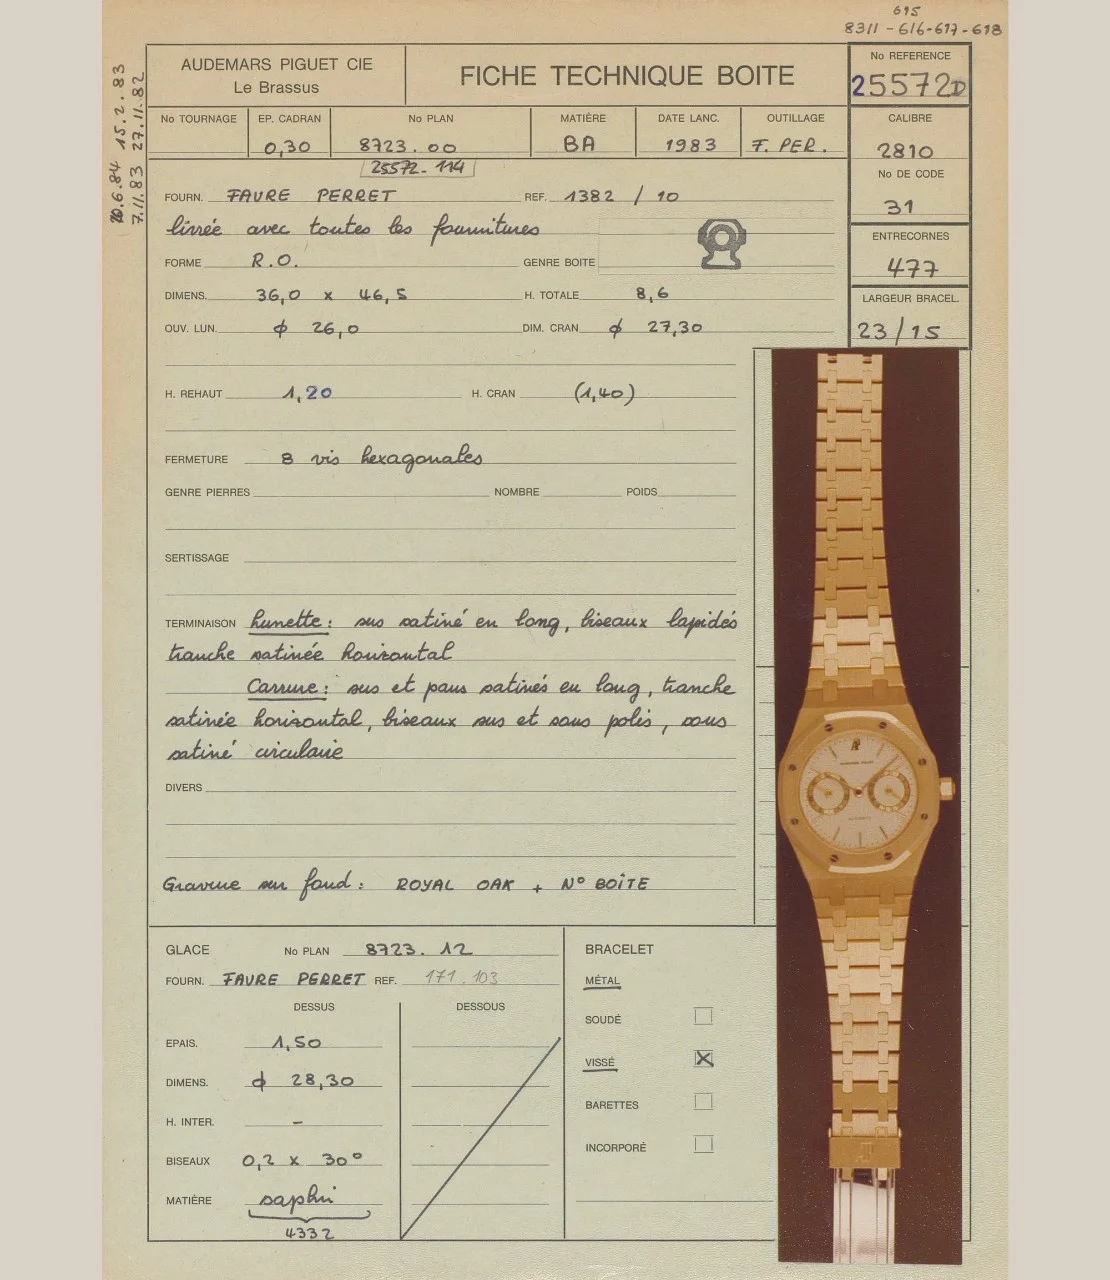 615
8311 - 616-617-618
15.2.83
27.11.82
20.6.84
7.11.83
AUDEMARS PIGUET CIE
Le Brassus
FICHE TECHNIQUE BOITE
No REFERENCE
25572D
No TOURNAGE
EP. CADRAN
0,30
No PLAN
8723.00
MATIÈRE
BA
DATE LANC.
1983
OUTILLAGE
F. PER.
CALIBRE
2810
25572-114
No DE CODE
31
FOURN. FAVRE PERRET REF. 1382 / 10
livrée avec toutes les fournitures
ENTRECORNES
477
FORME R.O. GENRE BOITE
DIMENS. 36,0 x 46,5 H. TOTALE 8,6
LARGEUR BRACEL.
23/15
OUV. LUN. ϕ 26,0 DIM. CRAN ϕ 27,30
H. REHAUT 1,20 H. CRAN (1,40)
FERMETURE 8 vis hexagonales
GENRE PIERRES NOMBRE POIDS
SERTISSAGE
TERMINAISON lunette: sus satiné en long, biseaux lapidés
tranche satinée horizontal
Carrure: sus et pans satinés en long, tranche
satinée horizontal, biseaux sus et sous polis, sous
satiné circulaire
DIVERS
Gravure sur fond: ROYAL OAK + N° BOÎTE
GLACE No PLAN 8723.12
FOURN. FAVRE PERRET REF. 171.103
DESSUS DESSOUS
EPAIS. 1,50
DIMENS. ϕ 28,30
H. INTER. –
BISEAUX 0,2 x 30°
MATIÈRE saphir
4332
BRACELET
MÉTAL
SOUDÉ
VISSÉ
BARETTES
INCORPORÉ
AP
AUDEMARS PIGUET
AUTOMATIC
AP